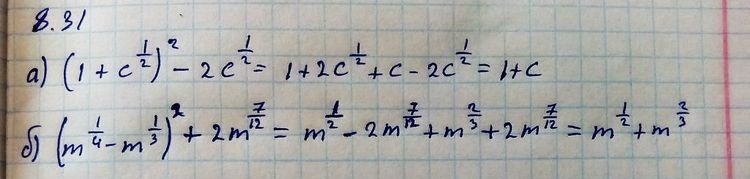 8.31
а) (1 + c^{1/2})^2 - 2c^{1/2} = 1 + 2c^{1/2} + c - 2c^{1/2} = 1 + c
б) (m^{1/4} - m^{1/3})^2 + 2m^{7/12} = m^{1/2} - 2m^{7/12} + m^{2/3} + 2m^{7/12} = m^{1/2} + m^{2/3}